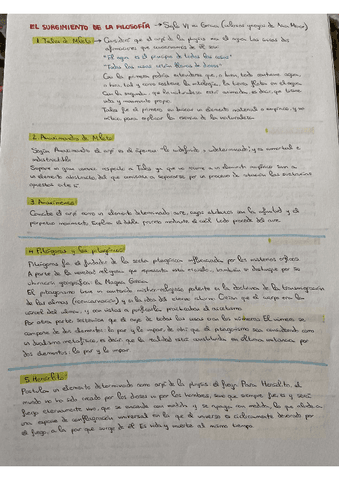 EL SURGIMIENTO DE LA FILOSOFÍA → Siglo VI en Grecia (colonias griegas de Asia Menor)
1. Tales de Mileto → Consideró que el arjé de la physis era el agua. Las únicas dos
afirmaciones que conocemos de él son:
"El agua es el principio de todas las cosas"
"Todas las cosas están llenas de dioses"
Con la primera podría entenderse que, o bien, todo contiene agua,
o bien, tal y como sostiene la mitología, la tierra flota en el agua.
Con la segunda, que la naturaleza está animada, es decir, que tiene
vida y movimiento propio.
Tales fue el primero en buscar un elemento material o empírico, y no
mítico, para explicar la esencia de la naturaleza.
2. Anaximandro de Mileto
Según Anaximandro el arjé es el ápeiron: lo indefinido e indeterminado; es inmortal e
indestructible
Supone un gran avance respecto a Tales ya que no recurre a un elemento empírico sino a
un elemento abstracto del que comienzan a separarse por un proceso de rotación las sustancias
opuestas a este
3. Anaxímenes
Concibe el arjé como un elemento determinado: aire, cuyas
perpetuo movimiento. Explica el doble proceso mediante el cual todo procede del aire
4. Pitágoras y los pitagóricos
Pitágoras fue el fundador de la secta pitagórica influenciada por los misterios órficos
A parte de la vertiente religiosa que representa esta escuela, también se destaca por su
ubicación geográfica: la Magna Grecia.
El pitagorismo tuvo un contenido místico-religioso patente en la doctrina de la transmigración
de las almas (reencarnación) y en la idea del eterno retorno. Creían que el cuerpo era la
cárcel del alma, y con vistas a purificarla practicaban el ascetismo
Por otra parte, sostienen que el arjé de todas las cosas eran los números. El número se
compone de dos elementos: lo par y lo impar, de ahí que el pitagorismo sea considerado como
un dualismo metafísico, es decir, que la realidad está constituida en última instancia por
dos elementos, lo par y lo impar.
5. Heráclito
Postula un elemento determinado como arjé de la physis: el fuego. Para Heráclito, el
mundo no ha sido creado por los dioses ni por los hombres, sino que siempre fue y será
fuego eternamente vivo, que se enciende con medida y se apaga con medida, lo que alude a
una especie de conflagración universal en la que el universo es cíclicamente devorado por
el fuego, a la par que surge de él. Es vida y muerte al mismo tiempo